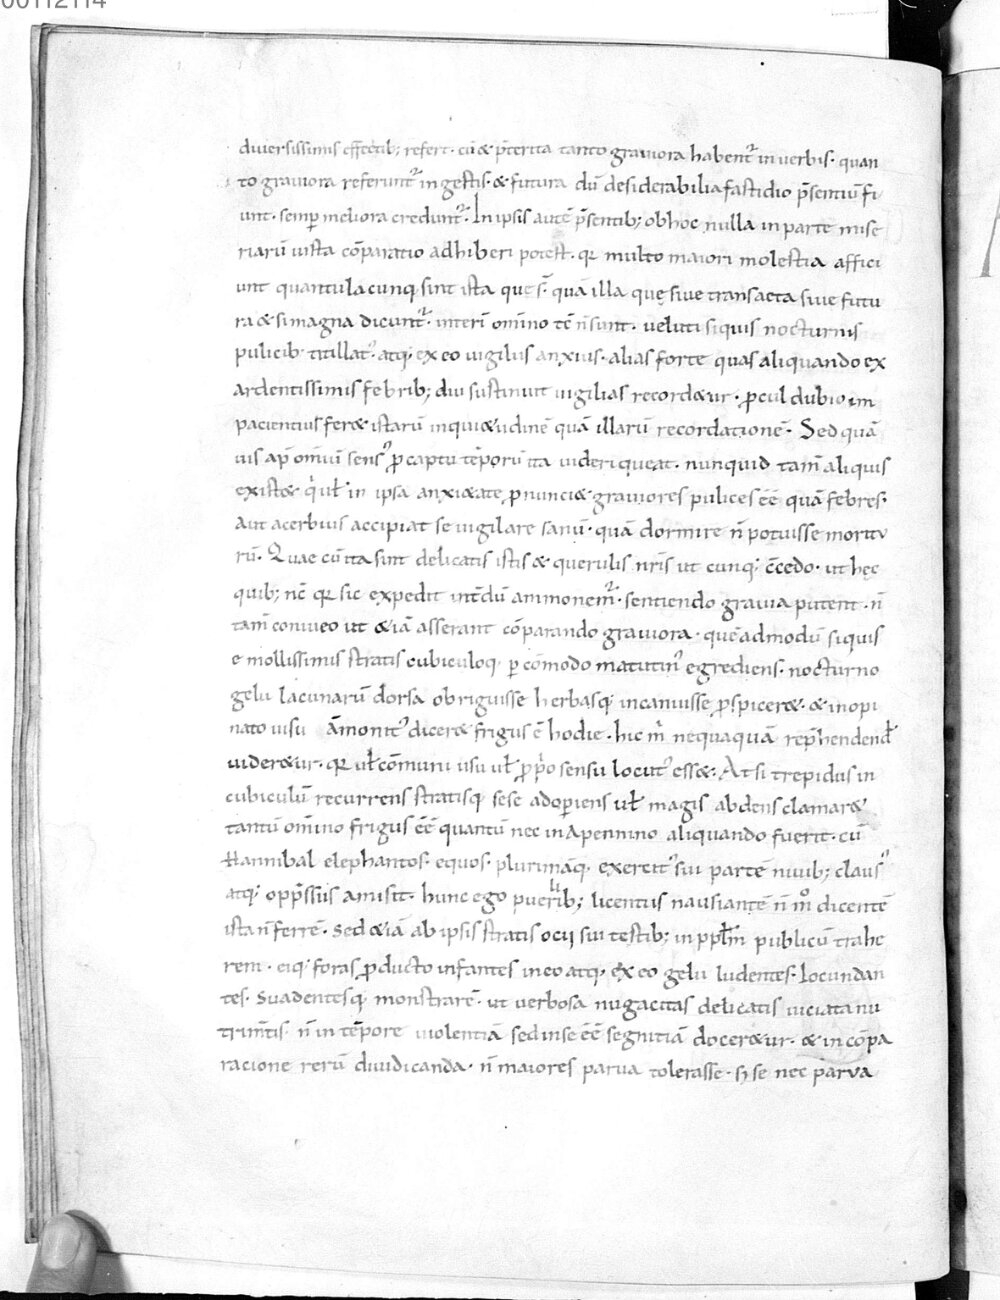 00112114
diuersissimis effectib; refert. cū & p̄terita tanto grauiora habent᷑ in uerbis. quan
to grauiora referunt᷑ in gestis. & futura dū desiderabilia fastidio p̄sentiū fi
unt. semp̱ meliora credunt᷑. In ipsis autē p̄sentib; ob hoc nulla in parte mise
riarū iusta cōparatio adhiberi potest. qꝛ multo maiori molestia affici
unt quantulacunq; sint ista que s̄. quā illa quę siue transacta siue futu
ra & si magna dicunt᷑. interī omīno tē n̄ sunt. ueluti siquis nocturnis
pulicib; titillat᷑. atq; ex eo uigiliis anxius. alias forte quas aliquando ex
ardentissimis febrib; diu sustinuit uigilias record&ur. ꝓcul dubio im
pacientius fer& istarū inqui&udinē quā illarū recordationē. Sed quā
uis ap̄ omīui sensꝰ ꝓ captu tēporū ita uideri queat. nunquid tam̄ aliquis
exist& q̇ ul̄ in ipsa anxi&ate ꝓnunci& grauiores pulices ēē quā febres.
Aut acerbius accipiat se uigilare sanū. quā dormire n̄ potuisse moritu
rū. Quae cū ita sint delicatis istis & querulis nr̄is ut cunq; c̄cedo. ut hęc
quib; nc̄ qꝛ sic expedit int̄dū ammonem᷑. sentiendo grauia putent. n̄
tam̄ conuueo ut &iā asserant cōparando grauiora. quēadmodū siquis
e mollissimis stratis cubiculoq; ꝑ cōmodo matutinꝰ egrediens. nocturno
gelu lacunarū dorsa obriguisse herbasq; incanuisse ꝓspicer&. & inopi
nato uisu āmonitꝰ dicer& frigus ē hodie. hic m̄ nequaquā rep̄hendend᷒
uider&ur. qꝛ ul̄ cōmuni usu ul̄ ꝓp̱o sensu locutꝰ ess&. At si trepidus in
cubiculū recurrens stratisq; sese adop̱iens ul̄ magis abdens clamar&
tantū omīno frigus ēē quantū nec in Apennino aliquando fuerit. cū
Hannibal elephantos. equos. plurimāq; exercitꝰ sui partē niuib; clausꝰ
atq; opp̄ssus amisit. hunc ego puerilib; licentius nausiantē n̄ mͦ dicentē
ista n̄ ferrē. Sed &iā ab ipsis stratis ocii sui testib; in pp̄lm̄ publicū trahe
rem. eiq; foras ꝓducto infantes in eo atq; ex eo gelu ludentes. Iocundan
tes. suadentesq; monstrarē. ut uerbosa nugacitas delicatis uiciata nu
trim̄tis. n̄ in tēpore uiolentiā sed in se ēē segnitiā docer&ur. & in cōpa
racione rerū diiudicanda. n̄ maiores parua tolerasse. ꝫ se nec parua